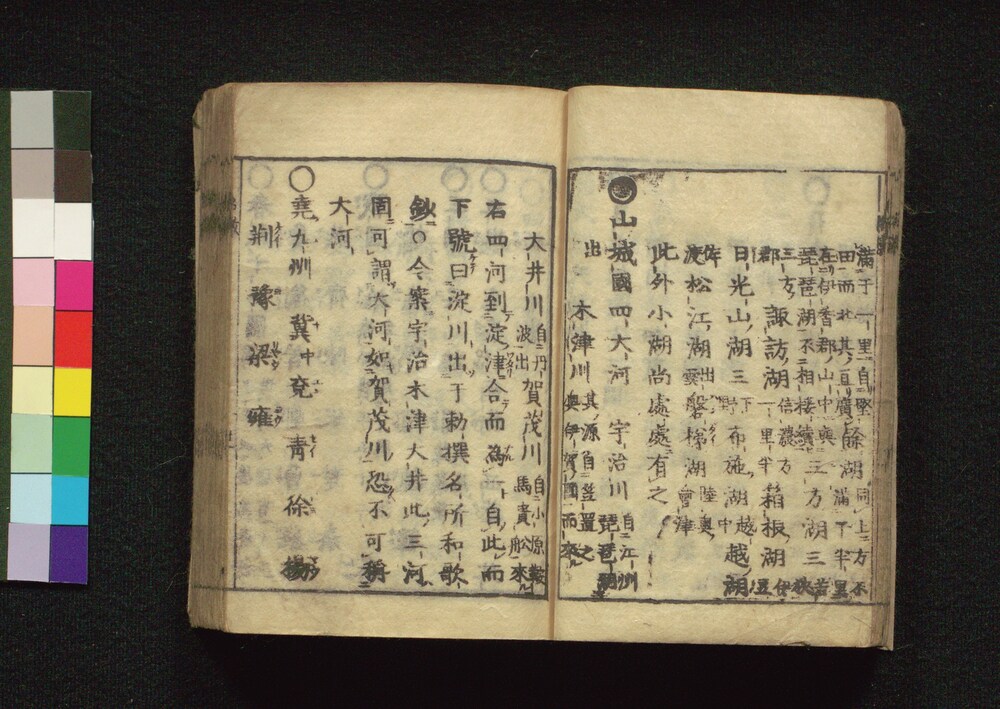 滿于一里自堅
田而北其直廣
餘湖同上方不滿于半里
在伊香郡山中與
琵琶湖不相接續
三方湖三方
諏訪湖
一里半
箱根湖
日光山湖三
布施湖越中
越湖
渡松江湖出雲
磐梯湖陸奧會津
此外小湖尚處處有之
山城國四大河
宇治川自江州琵琶湖
出
木津川其源自笠置之
奧伊賀國而來
大井川自丹波出
賀茂川自小原鞍馬貴舩來
右四河到淀津合而爲一自此而
下號曰淀川出于勅撰名所和歌
鈔○今案宇治木津大井此三河
罔可謂大河如賀茂川恐不可稱
大河
○堯九州冀中兗靑徐揚
荆豫梁雍